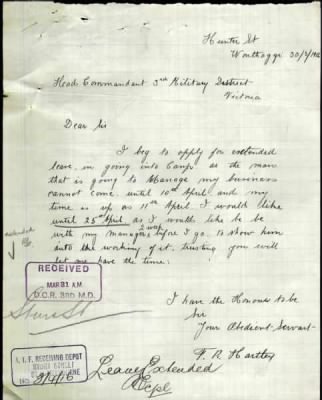 Hunter St
Wonthaggi 30/3/1916
Head Commandant 3rd Military District
Victoria
Dear Sir
I beg to apply for extended
leave in going into Camp as the man
that is going to Manage my business
cannot come until 10th April and my
time is up on 11th April I would like
until 25th April as I would like be be
with my Manager 2 weeks before I go. to show him
into the working of it. trusting you will
let me have the time.
extended
RECEIVED
MAR 31 A.M
D.C.R. 3RD M.D.
Sturt St
I have the Honour to be
Sir
Your Obedient Servant
F. R. Hartley
A.I.F. RECEIVING DEPOT
STURT STREET
MELBOURNE
2/4/16
Leave Extended